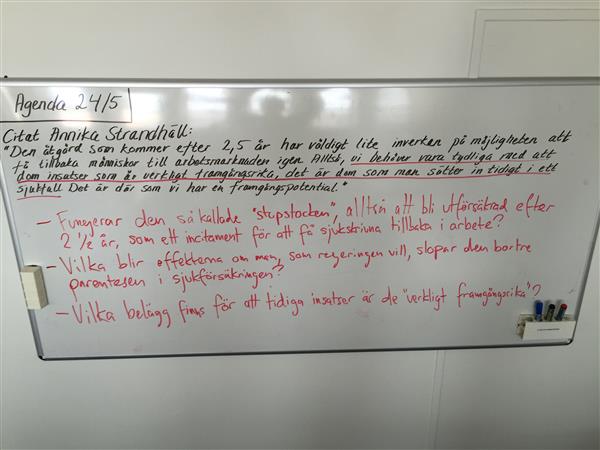 Agenda 24/5
Citat Annika Strandhäll:
"Den åtgärd som kommer efter 2,5 år har väldigt lite inverkan på möjligheten att
få tillbaka människor till arbetsmarknaden igen. Alltså, vi behöver vara tydliga med att
dom insatser som är verkligt framgångsrika, det är dom som man sätter in tidigt i ett
sjukfall Det är där som vi har en framgångspotential."
- Fungerar den så kallade "stupstocken", alltså att bli utförsäkrad efter
2 1/2 år, som ett incitament för att få sjukskrivna tillbaka i arbete?
- Vilka blir effekterna om man, som regeringen vill, slopar den bortre
parentesen i sjukförsäkringen?
- Vilka belägg finns för att tidiga insatser är de "verkligt framgångsrika"?